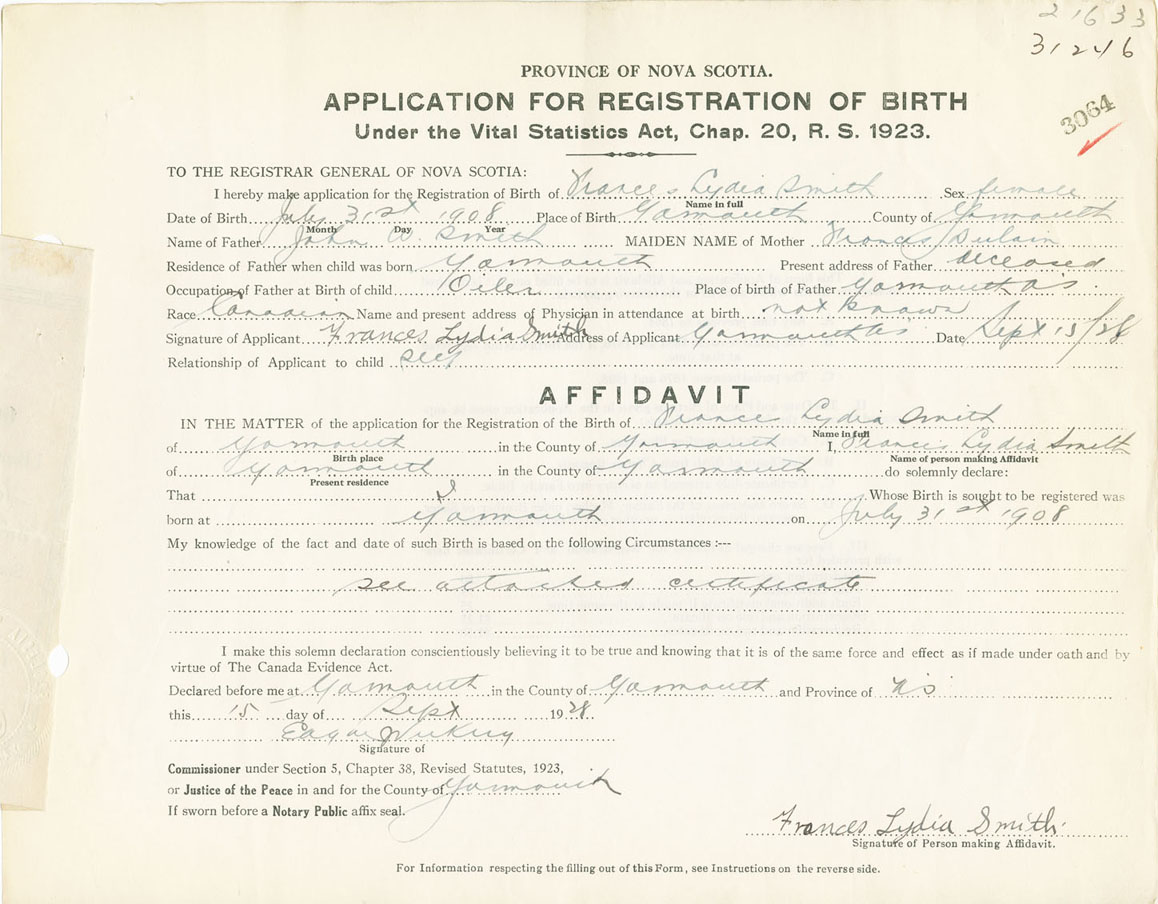 21633
31246
PROVINCE OF NOVA SCOTIA.
APPLICATION FOR REGISTRATION OF BIRTH
3064
Under the Vital Statistics Act, Chap. 20, R. S. 1923.
TO THE REGISTRAR GENERAL OF NOVA SCOTIA:
I hereby make application for the Registration of Birth of Frances Lydia Smith Sex female
Name in full
Date of Birth July 31st 1908 Place of Birth Yarmouth County of Yarmouth
Month Day Year
Name of Father John W. Smith MAIDEN NAME of Mother Frances Dulain
Residence of Father when child was born Yarmouth Present address of Father deceased
Occupation of Father at Birth of child Oiler Place of birth of Father Yarmouth Co
Race Canadian Name and present address of Physician in attendance at birth not known
Signature of Applicant Frances Lydia Smith Address of Applicant Yarmouth Date Sept 15/28
Relationship of Applicant to child self
AFFIDAVIT
IN THE MATTER of the application for the Registration of the Birth of Frances Lydia Smith
Name in full
of Yarmouth in the County of Yarmouth I, Frances Lydia Smith
Birth place Name of person making Affidavit
of Yarmouth in the County of Yarmouth do solemnly declare:
Present residence
That I Whose Birth is sought to be registered was
born at Yarmouth on July 31st 1908
My knowledge of the fact and date of such Birth is based on the following Circumstances :---
see attached certificate
I make this solemn declaration conscientiously believing it to be true and knowing that it is of the same force and effect as if made under oath and by
virtue of The Canada Evidence Act.
Declared before me at Yarmouth in the County of Yarmouth and Province of NS
this 15 day of Sept 1928
Edgar
Signature of
Commissioner under Section 5, Chapter 38, Revised Statutes, 1923,
or Justice of the Peace in and for the County of Yarmouth
If sworn before a Notary Public affix seal.
Frances Lydia Smith
Signature of Person making Affidavit.
For Information respecting the filling out of this Form, see Instructions on the reverse side.